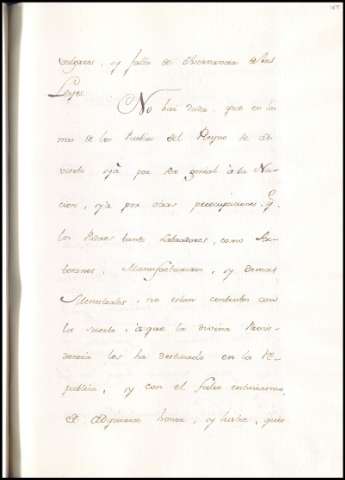 vulgares, y falta de observancia de las
Leyes.
No hai duda, que en los
mas de los Pueblos del Reyno se ad-
vierte, oyà por ser genial à la Na-
cion, oyà por otras preocupaciones, q.e
los Padres tanto Labradores, como Ar-
tesanos, Manufactureros, y demas
Menestrales, no estan contentos con
la suerte, à que la divina Provi-
dencia les ha destinado en la Re-
publica, y con el falso entusiasmo
de adquirir honra, y hacer, que